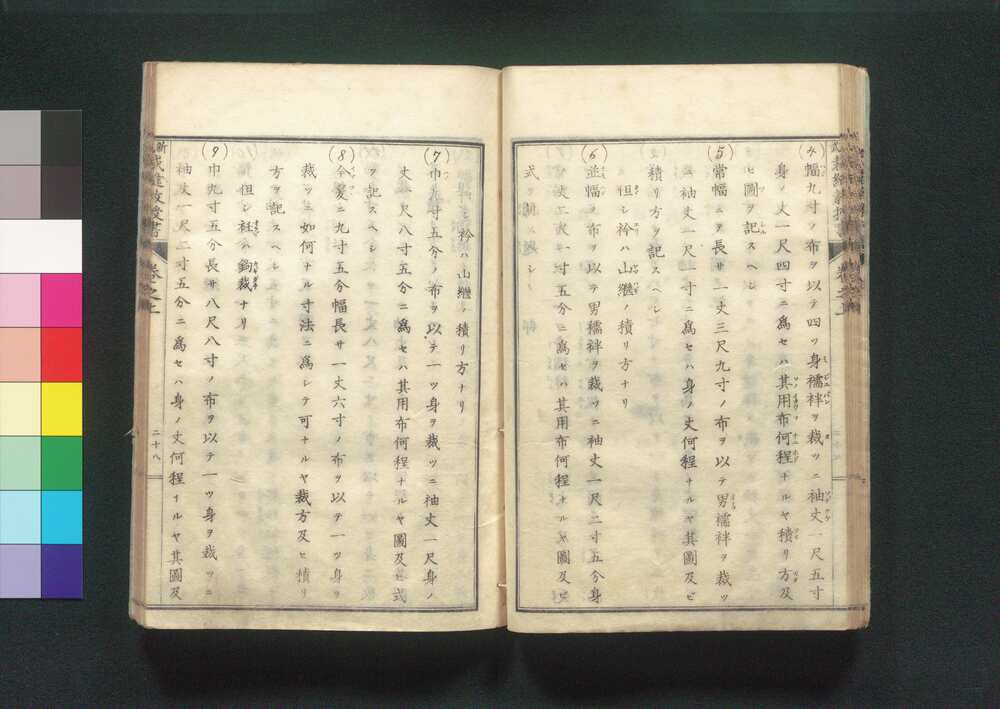 (4) 幅九寸ノ布ヲ以テ四ツ身襦袢ヲ裁ツニ袖丈一尺五寸
身ノ丈一尺四寸ニ爲セハ其用布何程ナルヤ積リ方及
ヒ圖ヲ記スヘシ
(5) 常幅ニヲ長サ一丈三尺九寸ノ布ヲ以テ男襦袢ヲ裁ツ
ニ袖丈一尺二寸ニ爲セハ身ノ丈何程ナルヤ其圖及ビ
積リ方ヲ記スヘシ
但シ衿ハ山繼ノ積リ方ナリ
(6) 並幅ノ布ヲ以テ男襦袢ヲ裁ツニ袖丈一尺二寸五分身
ノ丈二尺一寸五分ニ爲セハ其用布何程ナルヤ圖及ビ
式ヲ
衿ハ山繼ノ積リ方ナリ
(7) 巾九寸五分ノ布ヲ以テ一ツ身ヲ裁ツニ袖丈一尺身ノ
丈二尺八寸五分ニ爲セハ其用布何程ナルヤ圖及ヒ式
ヲ記スヘシ
(8) 今爰ニ九寸五分幅長サ一丈六寸ノ布ヲ以テ一ツ身ヲ
裁ツニ如何ナル寸法ニ爲シテ可ナルヤ裁方及ヒ積リ
方ヲ記スヘシ
但シ衽ハ鉤裁ナリ
(9) 巾九寸五分長サ八尺八寸ノ布ヲ以テ一ツ身ヲ裁ツニ
袖丈一尺二寸五分ニ爲セハ身ノ丈何程ナルヤ其圖及
裁縫教授書
卷之上
二十八